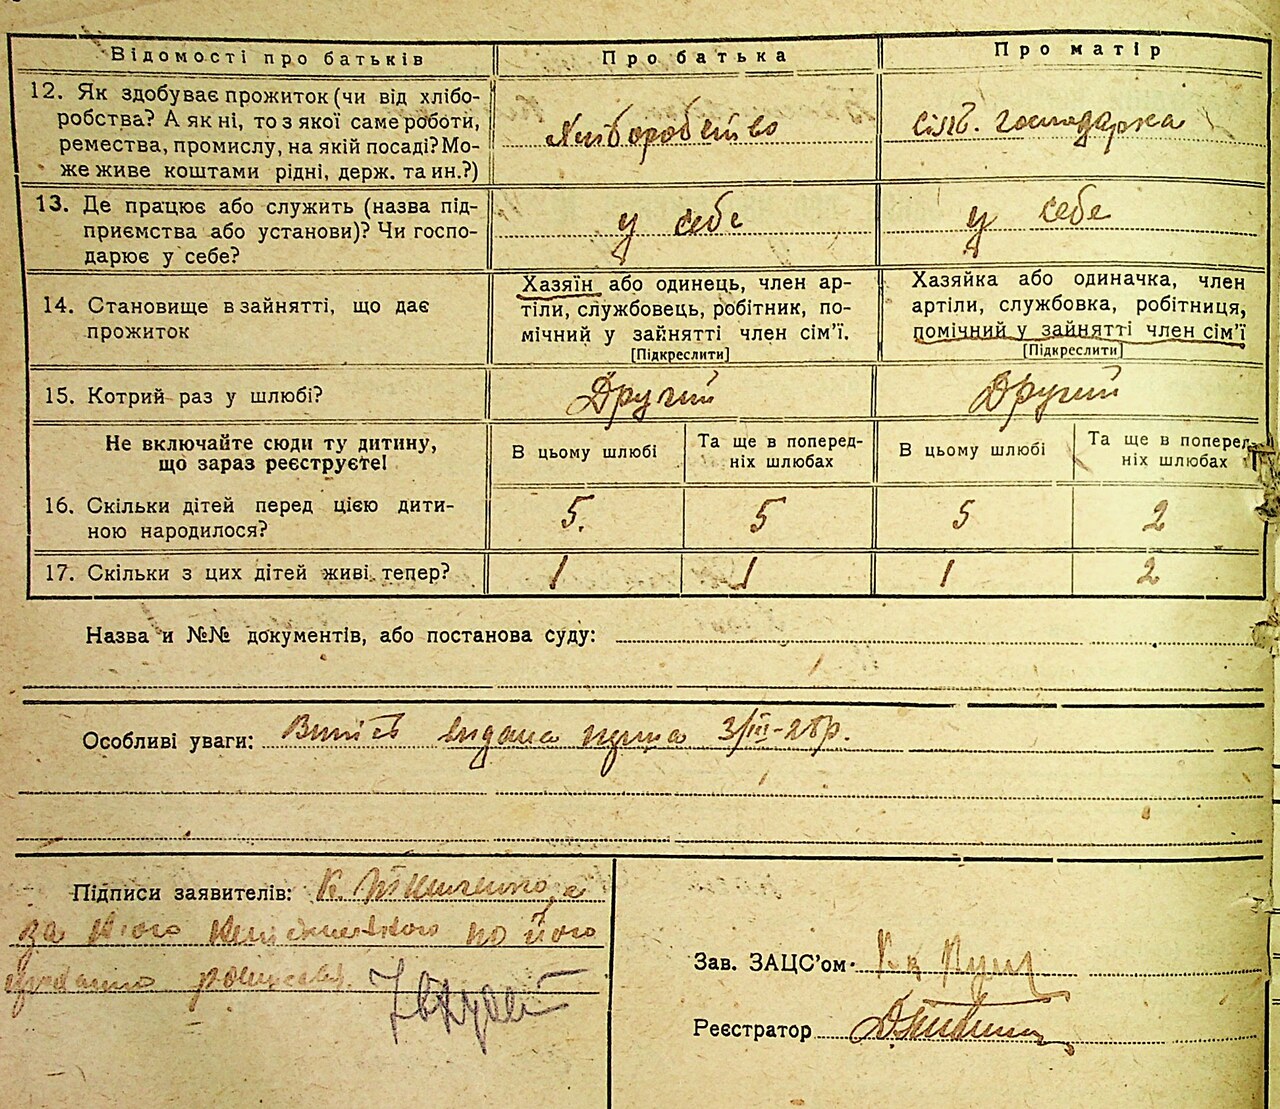 Відомості про батьків
Про батька
Про матір
12. Як здобуває прожиток (чи від хлібо-
робства? А як ні, то з якої саме роботи,
ремества, промислу, на якій посаді? Мо-
же живе коштами рідні, держ. та ин.?)
Хліборобство
сільб. господарка
13. Де працює або служить (назва під-
приємства або установи)? Чи госпо-
дарює у себе?
у себе
у себе
14. Становище в зайнятті, що дає
прожиток
Хазяїн або одинець, член ар-
тіли, службовець, робітник, по-
мічний у зайнятті член сім'ї.
[Підкреслити]
Хазяйка або одиначка, член
артіли, службовка, робітниця,
помічний у зайнятті член сім'ї
[Підкреслити]
15. Котрий раз у шлюбі?
Другий
Другий
Не включайте сюди ту дитину,
що зараз реєструєте!
В цьому шлюбі
Та ще в поперед-
ніх шлюбах
В цьому шлюбі
Та ще в поперед-
ніх шлюбах
16. Скільки дітей перед цією дити-
ною народилося?
5.
5
5
2
17. Скільки з цих дітей живі тепер?
1
1
1
2
Назва и №№ документів, або постанова суду:
Особливі уваги: Випись видана 3/III-28р.
Підписи заявителів: К. а
за його по його
Зав. ЗАЦС'ом
Реєстратор